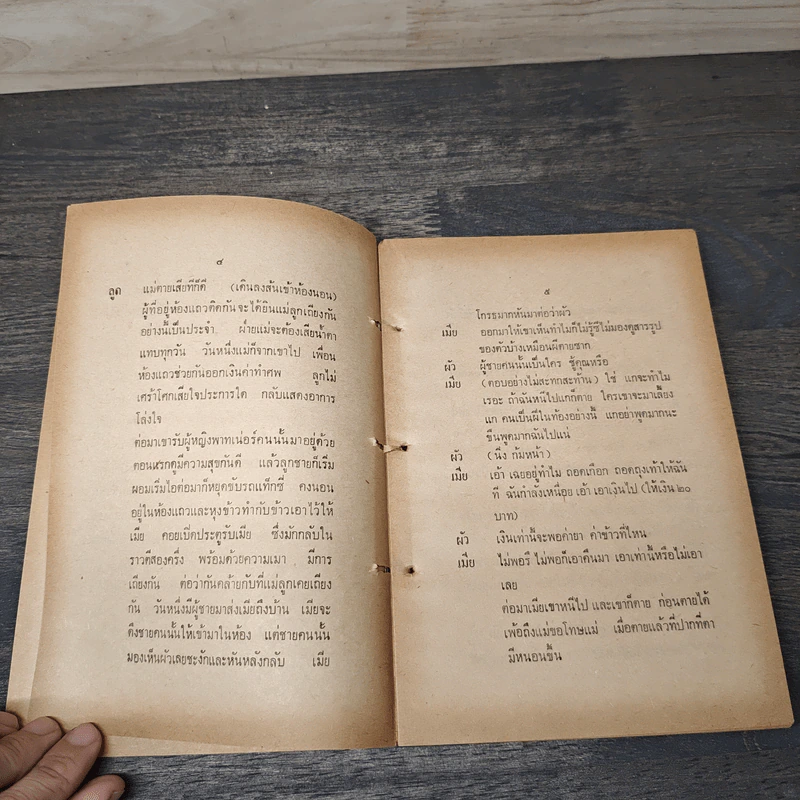 ๔
ลูก แม่ตายเสียทีก็ดี (เดินลงส้นเข้าห้องนอน)
ผู้ที่อยู่ห้องแถวติดกันจะได้ยินแม่ลูกเถียงกัน
อย่างนี้เป็นประจำ ฝ่ายแม่จะต้องเสียน้ำตา
แทบทุกวัน วันหนึ่งแม่ก็จากเขาไป เพื่อน
ห้องแถวช่วยกันออกเงินค่าทำศพ ลูกไม่
เศร้าโศกเสียใจประการใด กลับแสดงอาการ
โล่งใจ
ต่อมาเขารับผู้หญิงพาทเนอร์คนนั้นมาอยู่ด้วย
ตอนแรกดูมีความสุขกันดี แล้วลูกชายก็เริ่ม
ผอมเริ่มไอต่อมาก็หยุดขับรถแท็กซี่ คงนอน
อยู่ในห้องแถวและหุงข้าวทำกับข้าวเอาไว้ให้
เมีย คอยเปิดประตูรับเมีย ซึ่งมักกลับใน
ราวตีสองครึ่ง พร้อมด้วยความเมา มีการ
เถียงกัน ต่อว่ากันคล้ายกับที่แม่ลูกเคยเถียง
กัน วันหนึ่งมีผู้ชายมาส่งเมียถึงบ้าน เมียจะ
ดึงชายคนนั้นให้เข้ามาในห้อง แต่ชายคนนั้น
มองเห็นผัวเลยชะงักและหันหลังกลับ เมีย
๕
โกรธมากหันมาต่อว่าผัว
เมีย ออกมาให้เขาเห็นทำไมก็ไม่รู้ซีไม่มองดูสารรูป
ของตัวบ้างเหมือนผีตายซาก
ผัว ผู้ชายคนนั้นเป็นใคร ชู้คุณหรือ
เมีย (ตอบอย่างไม่สะทกสะท้าน) ใช่ แกจะทำไม
เรอะ ถ้าฉันหนีไปแกก็ตาย ใครเขาจะมาเลี้ยง
แก คนเป็นผีในท้องอย่างนี้ แกอย่าพูดมากนะ
ขืนพูดมากฉันไปแน่
ผัว (นิ่ง ก้มหน้า)
เมีย เอ้า เฉยอยู่ทำไม ถอดเกือก ถอดถุงเท้าให้ฉัน
ที ฉันกำลังเหนื่อย เอ้า เอาเงินไป (ให้เงิน ๒๐
บาท)
ผัว เงินเท่านี้จะพอค่ายา ค่าข้าวที่ไหน
เมีย ไม่พอรึ ไม่พอก็เอาคืนมา เอาเท่านี้หรือไม่เอา
เลย
ต่อมาเมียเขาหนีไป และเขาก็ตาย ก่อนตายได้
เพ้อถึงแม่ขอโทษแม่ เมื่อตายแล้วที่ปากที่ตา
มีหนอนขึ้น